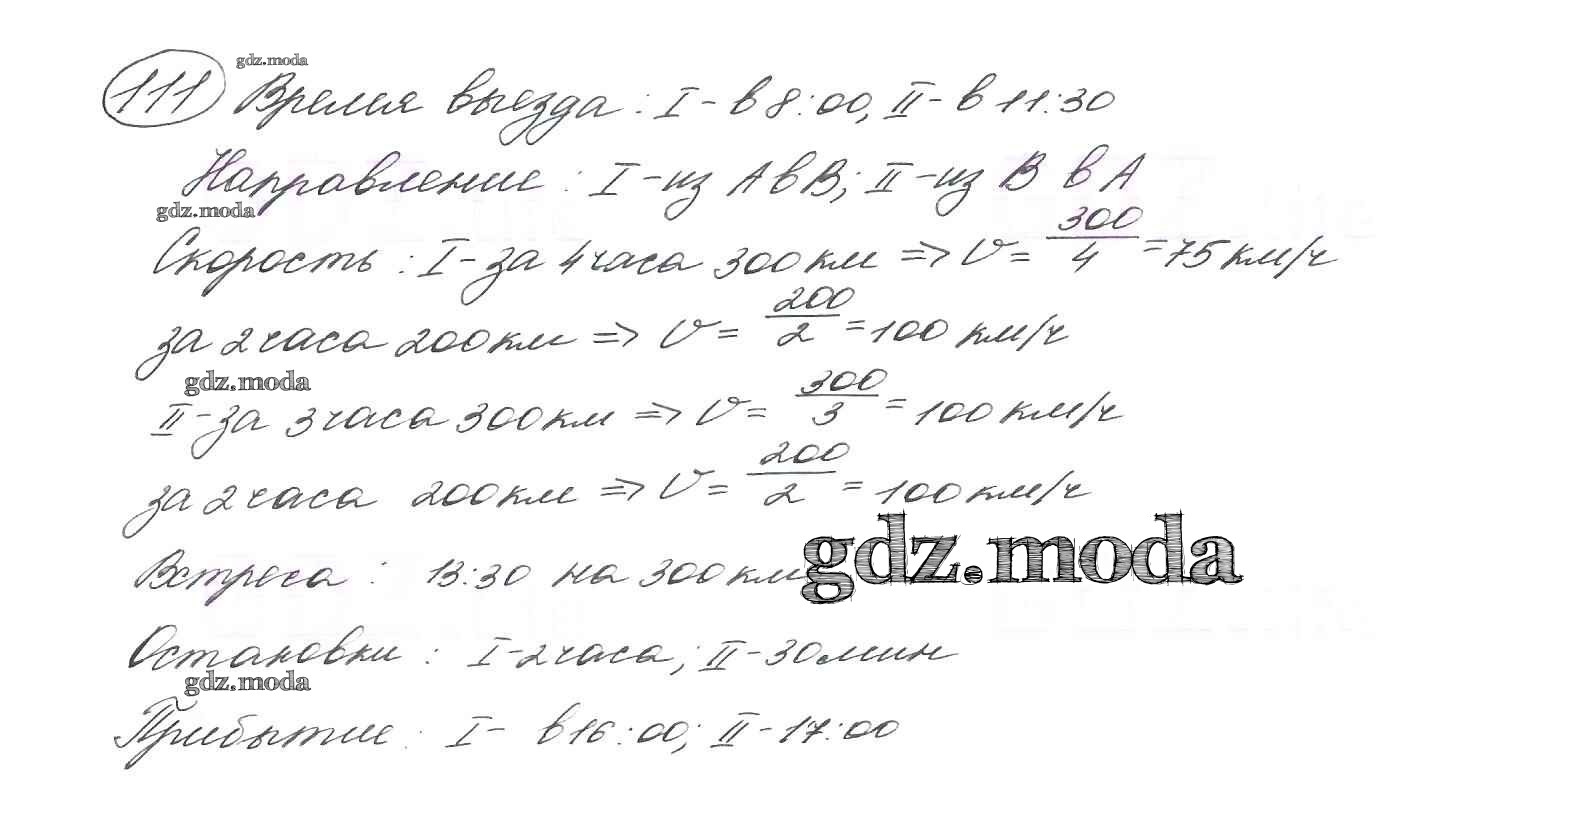 gdz.moda
111 Время выезда: I - в 8:00, II - в 11:30
Направление: I - из A в B; II - из B в A
gdz.moda
Скорость: I - за 4 часа 300 км => V = 300/4 = 75 км/ч
за 2 часа 200 км => V = 200/2 = 100 км/ч
gdz.moda
II - за 3 часа 300 км => V = 300/3 = 100 км/ч
за 2 часа 200 км => V = 200/2 = 100 км/ч
gdz.moda
Встреча: 13:30 на 300 км
Остановки: I - 2 часа; II - 30 мин
gdz.moda
Прибытие: I - в 16:00; II - 17:00